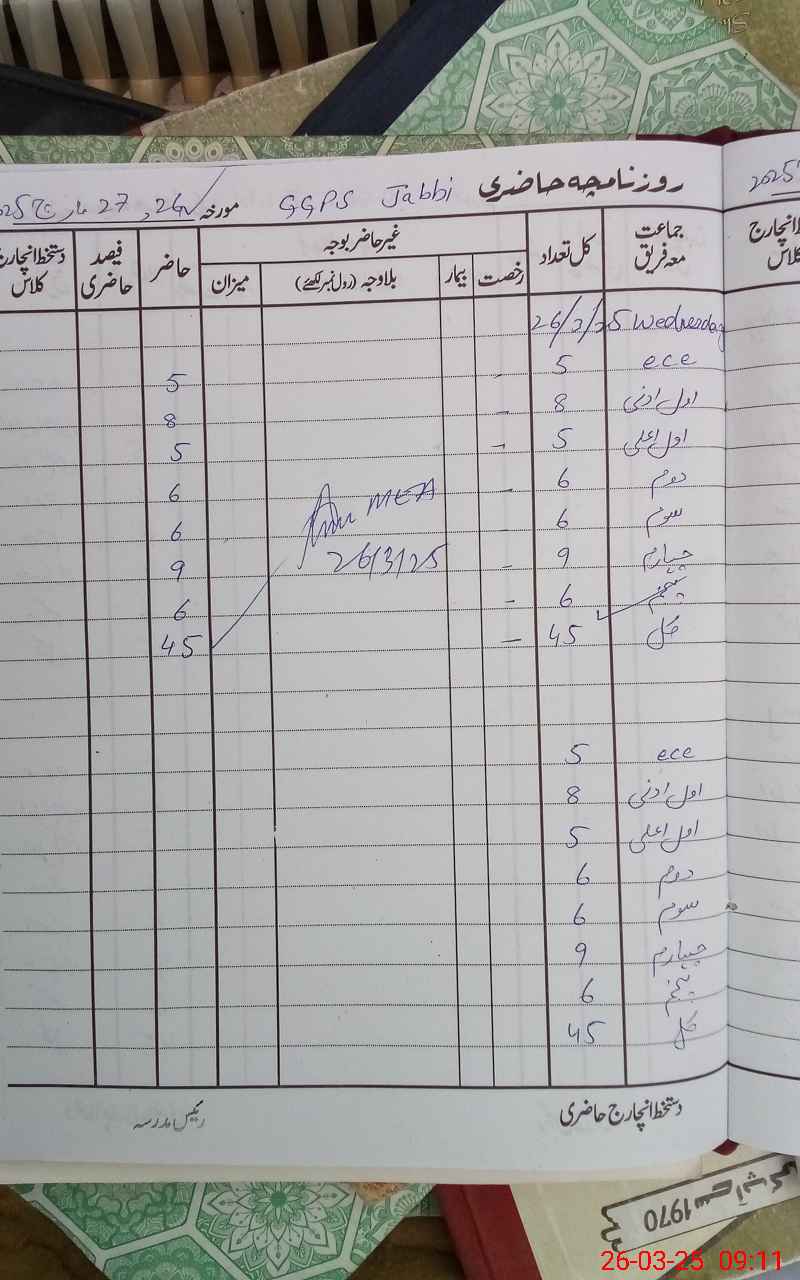 روزنامچہ حاضری GGPS Jabbi مورخہ 26، 27 مارچ 2025
جماعت معہ فریق کل تعداد غیر حاضر بوجہ حاضر فیصد حاضری دستخط انچارج کلاس
رخصت بیمار بلاوجہ (رول نمبر لکھئے) میزان
26/2/25 Wednesday
ece 5 - 5
اول ادنیٰ 8 - 8
اول اعلیٰ 5 - 5
دوم 6 - 6
سوم 6 6
چہارم 9 - 9
پنجم 6 - 6
کل 45 - 45
MEA
26/3/25
ece 5
اول ادنیٰ 8
اول اعلیٰ 5
دوم 6
سوم 6
چہارم 9
پنجم 6
کل 45
دستخط انچارج حاضری رئیس مدرسہ
2025
1970
26-03-25 09:11